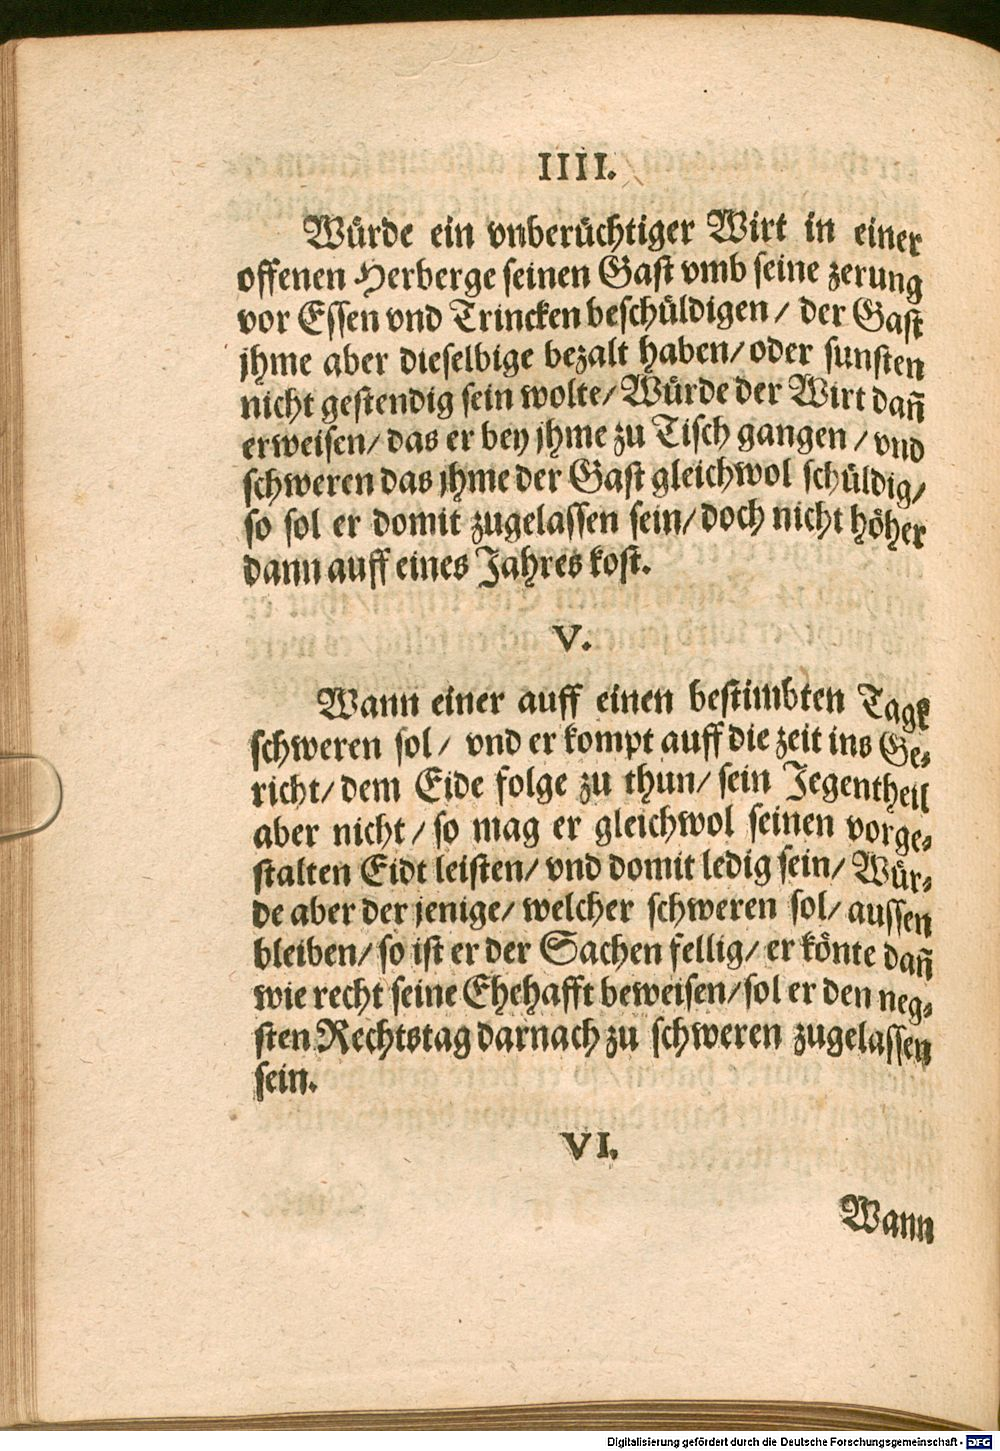 IIII.
Würde ein vnberüchtiger Wirt in einer
offenen Herberge seinen Gast vmb seine zerung
vor Essen vnd Trincken beschüldigen / der Gast
jhme aber dieselbige bezalt haben/ oder sunsten
nicht gestendig sein wolte/ Würde der Wirt dañ
erweisen/ das er bey jhme zu Tisch gangen / vnd
schweren das jhme der Gast gleichwol schüldig/
so sol er domit zugelassen sein/ doch nicht höher
dann auff eines Jahres kost.
V.
Wann einer auff einen bestimbten Tagk
schweren sol/ vnd er kompt auff die zeit ins Ge-
richt/ dem Eide folge zu thun/ sein Jegentheil
aber nicht / so mag er gleichwol seinen vorge-
stalten Eidt leisten/ vnd domit ledig sein/ Wür-
de aber der jenige/ welcher schweren sol/ aussen
bleiben/ so ist er der Sachen fellig/ er könte dañ
wie recht seine Ehehafft beweisen/ sol er den neg-
sten Rechtstag darnach zu schweren zugelassen
sein.
VI.
Wann
Digitalisierung gefördert durch die Deutsche Forschungsgemeinschaft - DFG